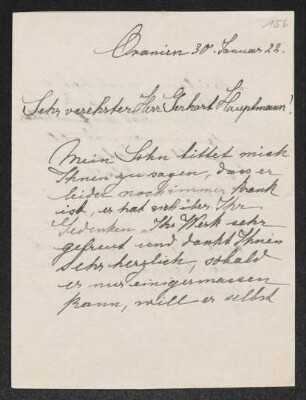 156
Oranien 30. Januar 22.
Sehr verehrter Herr Gerhart Hauptmann!
Mein Sohn bittet mich
Ihnen zu sagen, dass er
leider noch immer krank
ist, er hat sich über Ihr
Gedenken, Ihr Werk sehr
gefreut und dankt Ihnen
sehr herzlich, sobald
er nur einigermassen
kann, will er selbst